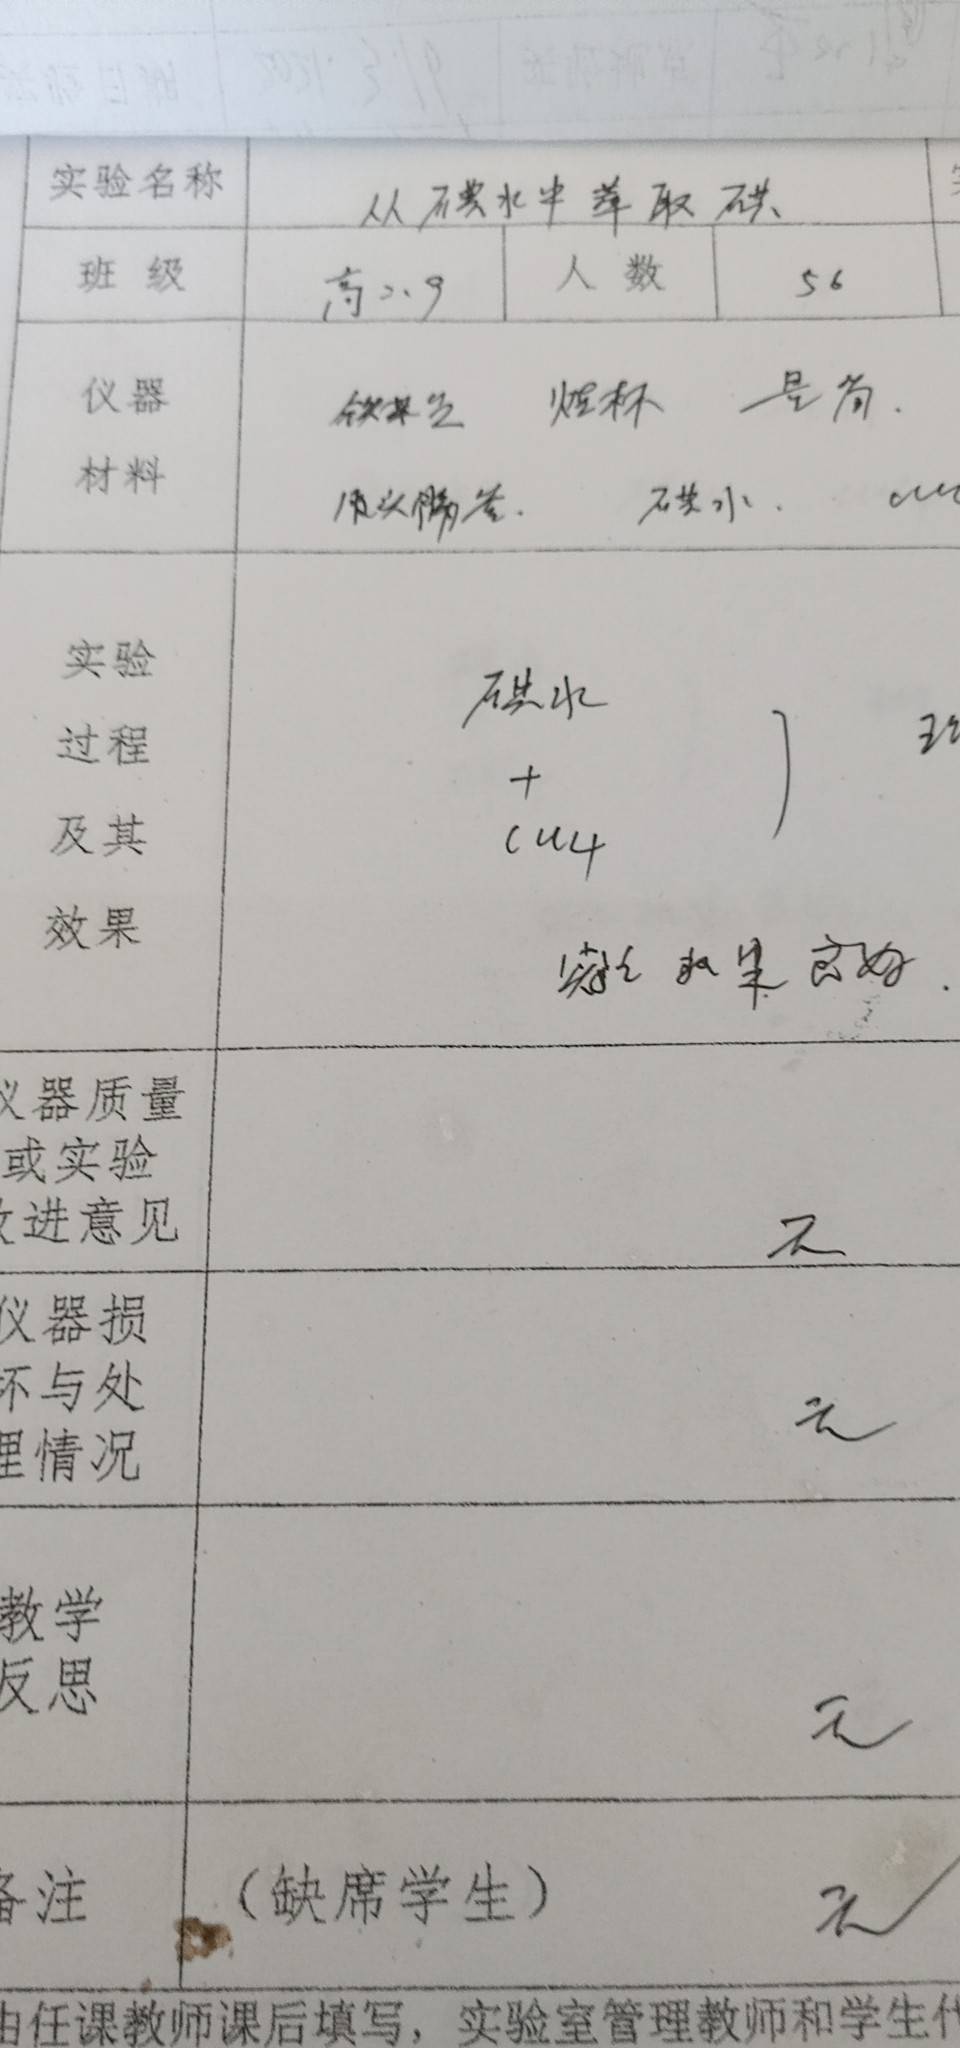 实验名称 从碘水中萃取碘
班 级 高二.9 人 数 56
仪器 铁架台 烧杯 量筒.
材料 碘水.
实验
过程
及其
效果
碘水
+
CCl4
实验效果良好.
仪器质量
或实验
改进意见
无
仪器损
坏与处
理情况
无
教学
反思
无
备注 （缺席学生） 无
由任课教师课后填写，实验室管理教师和学生代